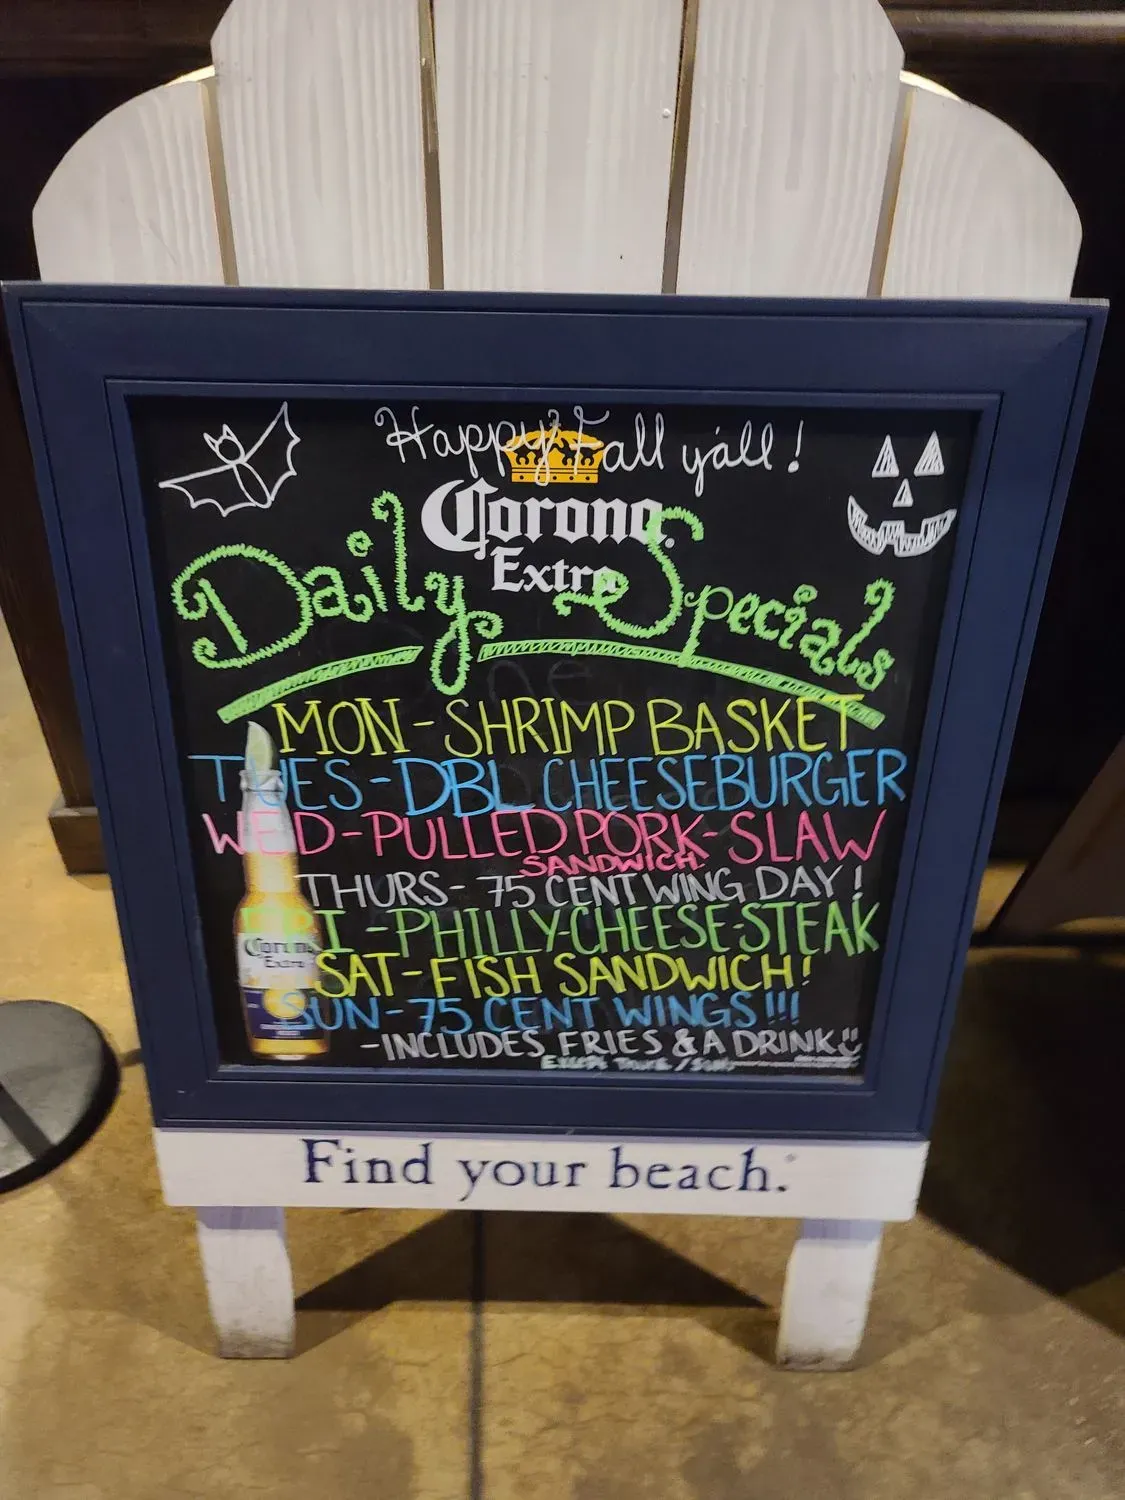 Happy Fall y'all!
Corona
Extra
Daily Specials
MON - SHRIMP BASKET
TUES - DBL CHEESEBURGER
WED - PULLED PORK - SLAW
SANDWICH
THURS - 75 CENT WING DAY!
FRI - PHILLY-CHEESE-STEAK
SAT - FISH SANDWICH!
SUN - 75 CENT WINGS!!!
- INCLUDES FRIES & A DRINK
EXCEPT THURS / SUN
Corona
Extra
Find your beach.